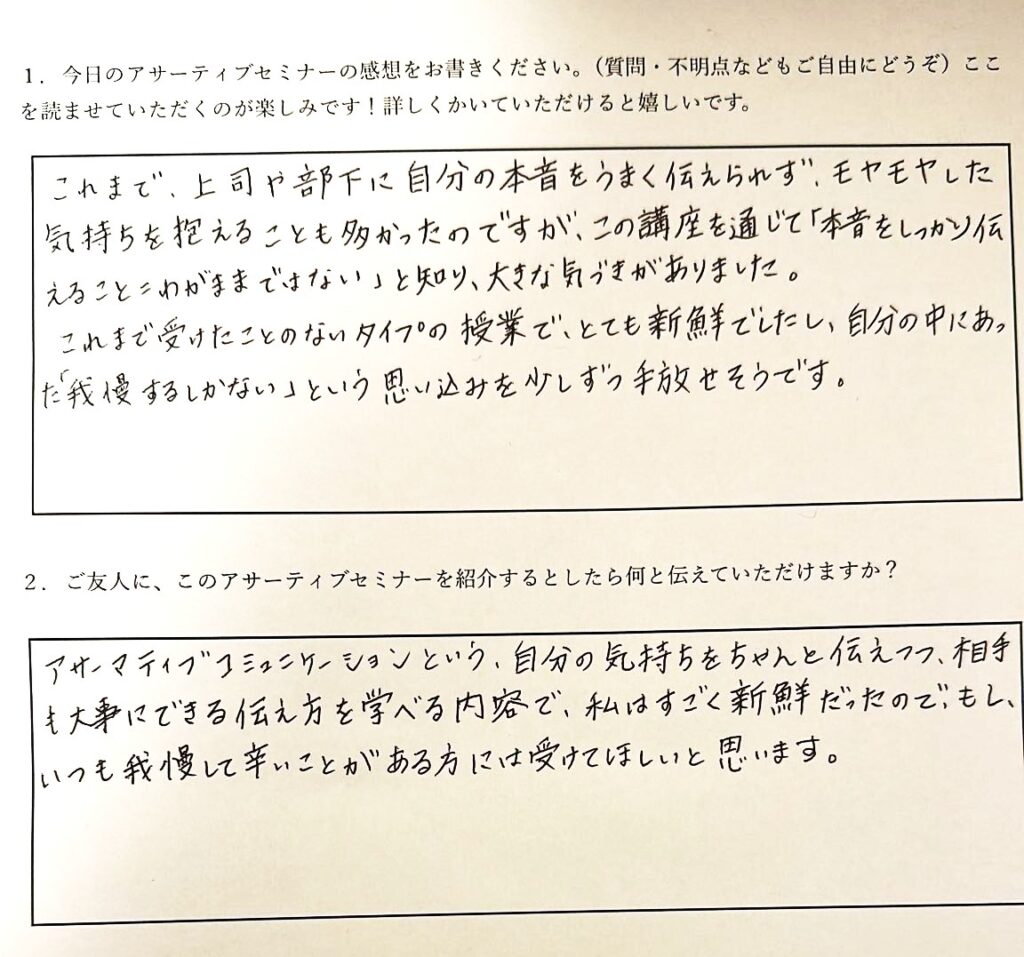 1．今日のアサーティブセミナーの感想をお書きください。（質問・不明点などもご自由にどうぞ）ここ
を読ませていただくのが楽しみです！詳しくかいていただけると嬉しいです。
これまで、上司や部下に自分の本音をうまく伝えられず、モヤモヤした
気持ちを抱えることも多かったのですが、この講座を通じて「本音をしっかり伝
えること＝わがままではない」と知り、大きな気づきがありました。
これまで受けたことのないタイプの授業で、とても新鮮でしたし、自分の中にあっ
た「我慢するしかない」という思い込みを少しずつ手放せそうです。
2．ご友人に、このアサーティブセミナーを紹介するとしたら何と伝えていただけますか？
アサーマティブコミュニケーションという、自分の気持ちをちゃんと伝えつつ、相手
も大事にできる伝え方を学べる内容で、私はすごく新鮮だったので、もし、
いつも我慢して辛いことがある方には受けてほしいと思います。